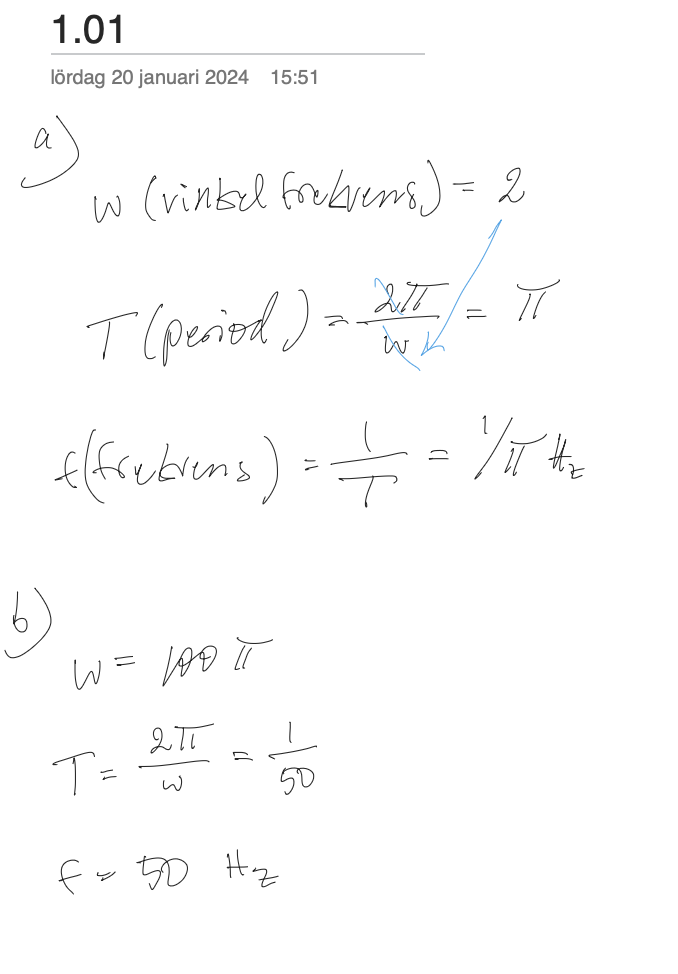 1.01
lördag 20 januari 2024 15:51
a)
w (vinkel frekvens) = 2
T (period) = 2π/w = π
f (frekvens) = 1/T = 1/π Hz
b)
w = 100 π
T = 2π/w = 1/50
f = 50 Hz